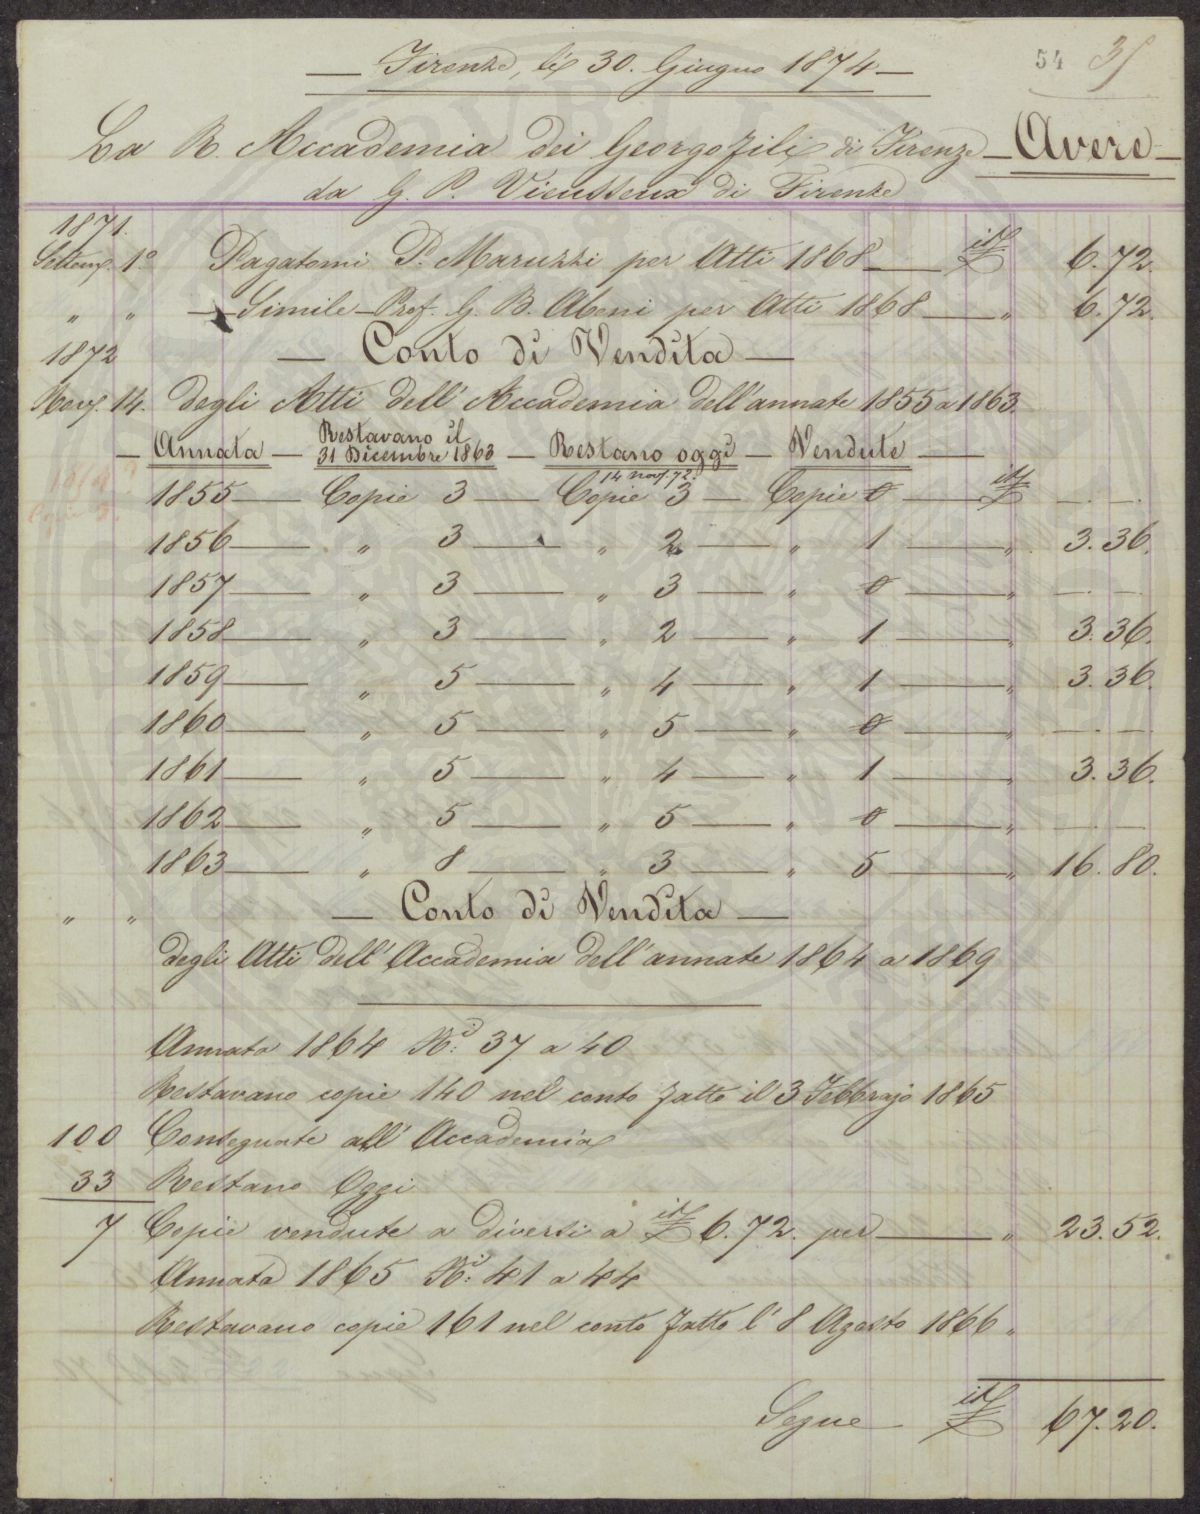 54 35
Firenze, li 30. Giugno 1874
La R. Accademia dei Georgofili di Firenze — Avere —
da G. P. Vieusseux di Firenze
1871.
Settemb. 1º Pagatomi P. Maruzzi per Atti 1868 — it£ 6.72.
" " — Simile — Prof. G. B. Abeni per Atti 1868 — " 6.72.
1872 — Conto di Vendita —
Nov. 14. degli Atti dell' Accademia dell'annate 1855 a 1863.
— Annata — Restavano il 31 Dicembre 1863 — Restano oggi 14 nov. 72. — Vendute —
1855 — Copie 3 — Copie 3 — Copie 0 — it£ — . —
1856 — " 3 — " 2 — " 1 — " 3.36.
1857 — " 3 — " 3 — " 0 — " — . —
1858 — " 3 — " 2 — " 1 — " 3.36.
1859 — " 5 — " 4 — " 1 — " 3.36.
1860 — " 5 — " 5 — " 0 — " — . —
1861 — " 5 — " 4 — " 1 — " 3.36.
1862 — " 5 — " 5 — " 0 — " — . —
1863 — " 8 — " 3 — " 5 — " 16.80.
" " — Conto di Vendita —
degli Atti dell' Accademia dell'annate 1864 a 1869
Annata 1864 Ni: 37 a 40
Restavano copie 140 nel conto fatto il 3 Febbrajo 1865
100 Consegnate all' Accademia
33 Restano Oggi
7 Copie vendute a diversi a it£ 6.72. per — " 23.52.
Annata 1865 Ni: 41 a 44
Restavano copie 161 nel conto fatto l' 8 Agosto 1866 "
Segue — it£ 67.20.